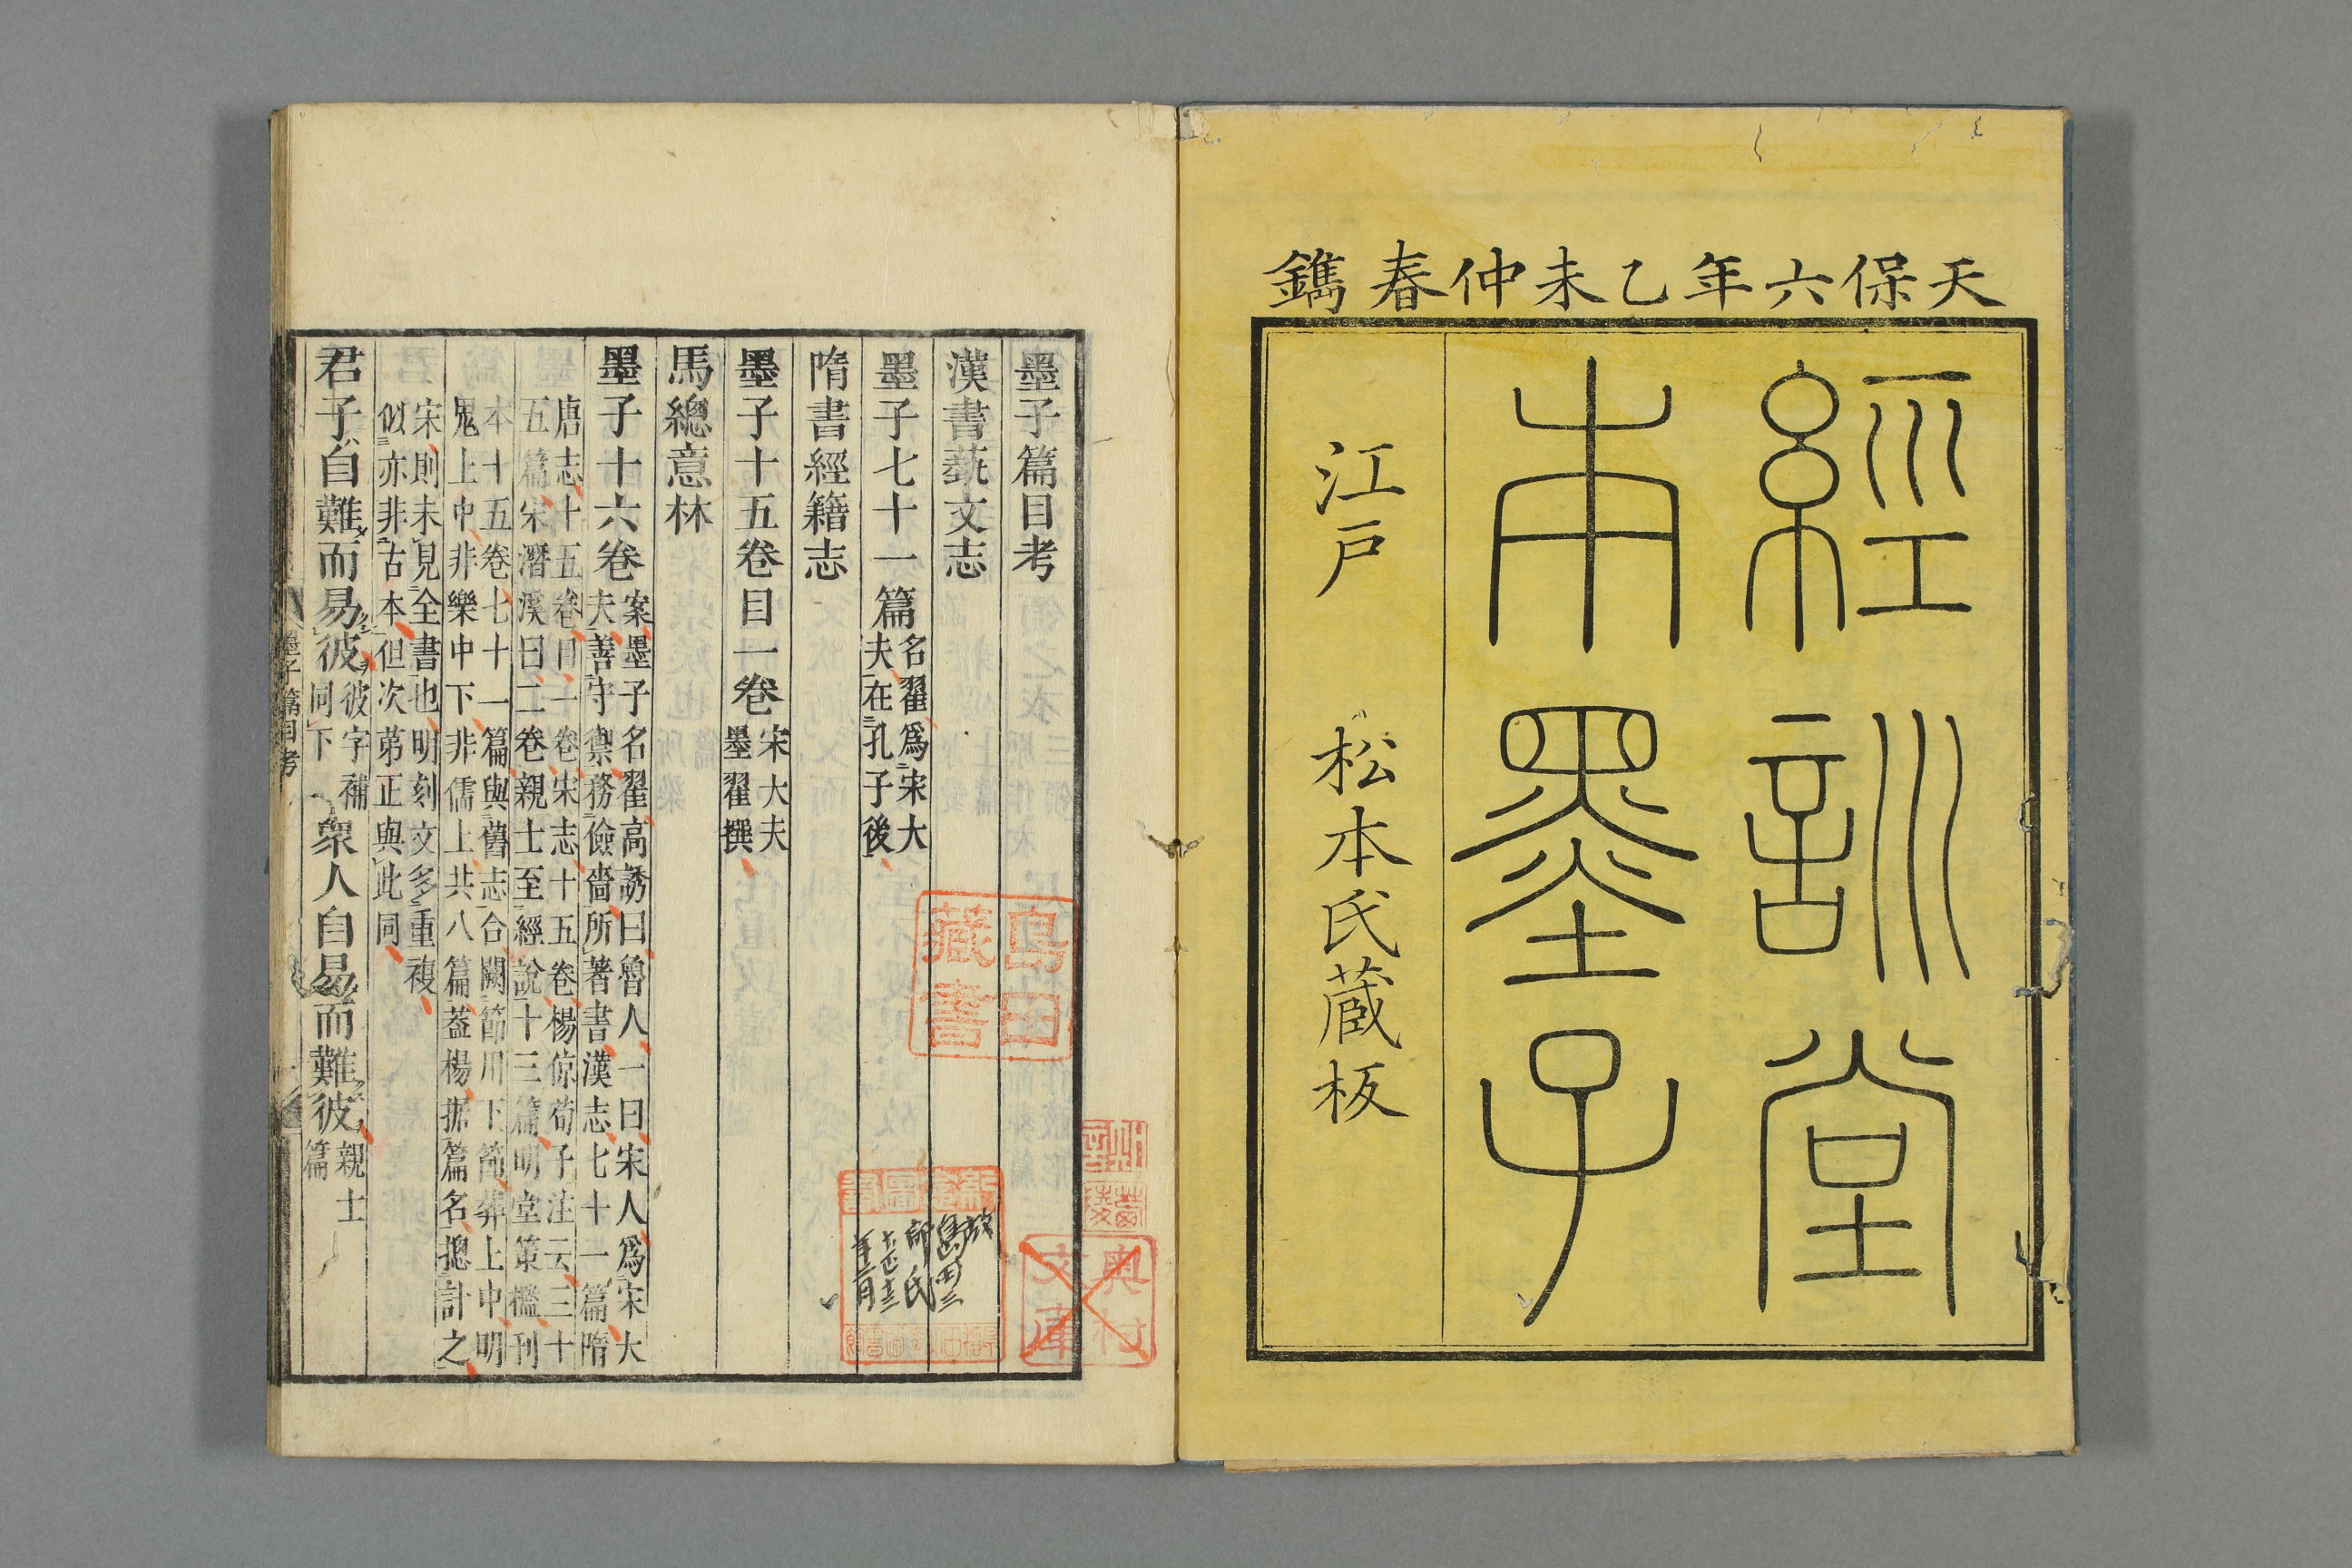 天保六年乙未仲春鐫
經訓堂
本墨子
江戸 松本氏蔵板
墨子篇目考
漢書蓺文志
墨子七十一篇 名翟爲宋大夫在孔子後
隋書經籍志
墨子十五卷目一卷 宋大夫墨翟撰
馬總意林
墨子十六卷 案墨子名翟高誘曰魯人一曰宋人爲宋大夫善守禦務儉嗇所著書漢志七十一篇隋
唐志十五卷目一卷宋志十五卷楊倞荀子注云三十五篇宋潛溪曰二卷親士至經說十三篇明堂策檻刊
本十五卷七十一篇與舊志合闕節用下節葬上中明鬼上中非樂中下非儒上共八篇葢楊據篇名摠計之
宋則未見全書也明刻文多重複似亦非古本但次第正與此同
君子自難而易彼 彼字補同下 衆人自易而難彼 親士篇
墨子篇目考
島田藏書
故島田三郎氏
大正十三年二月
奥村文庫